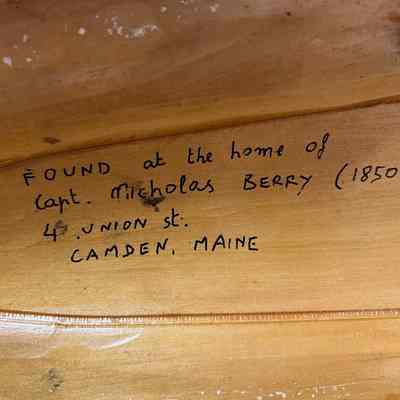 FOUND at the home of
Capt. Nicholas BERRY (1850
4 UNION st.
CAMDEN, MAINE